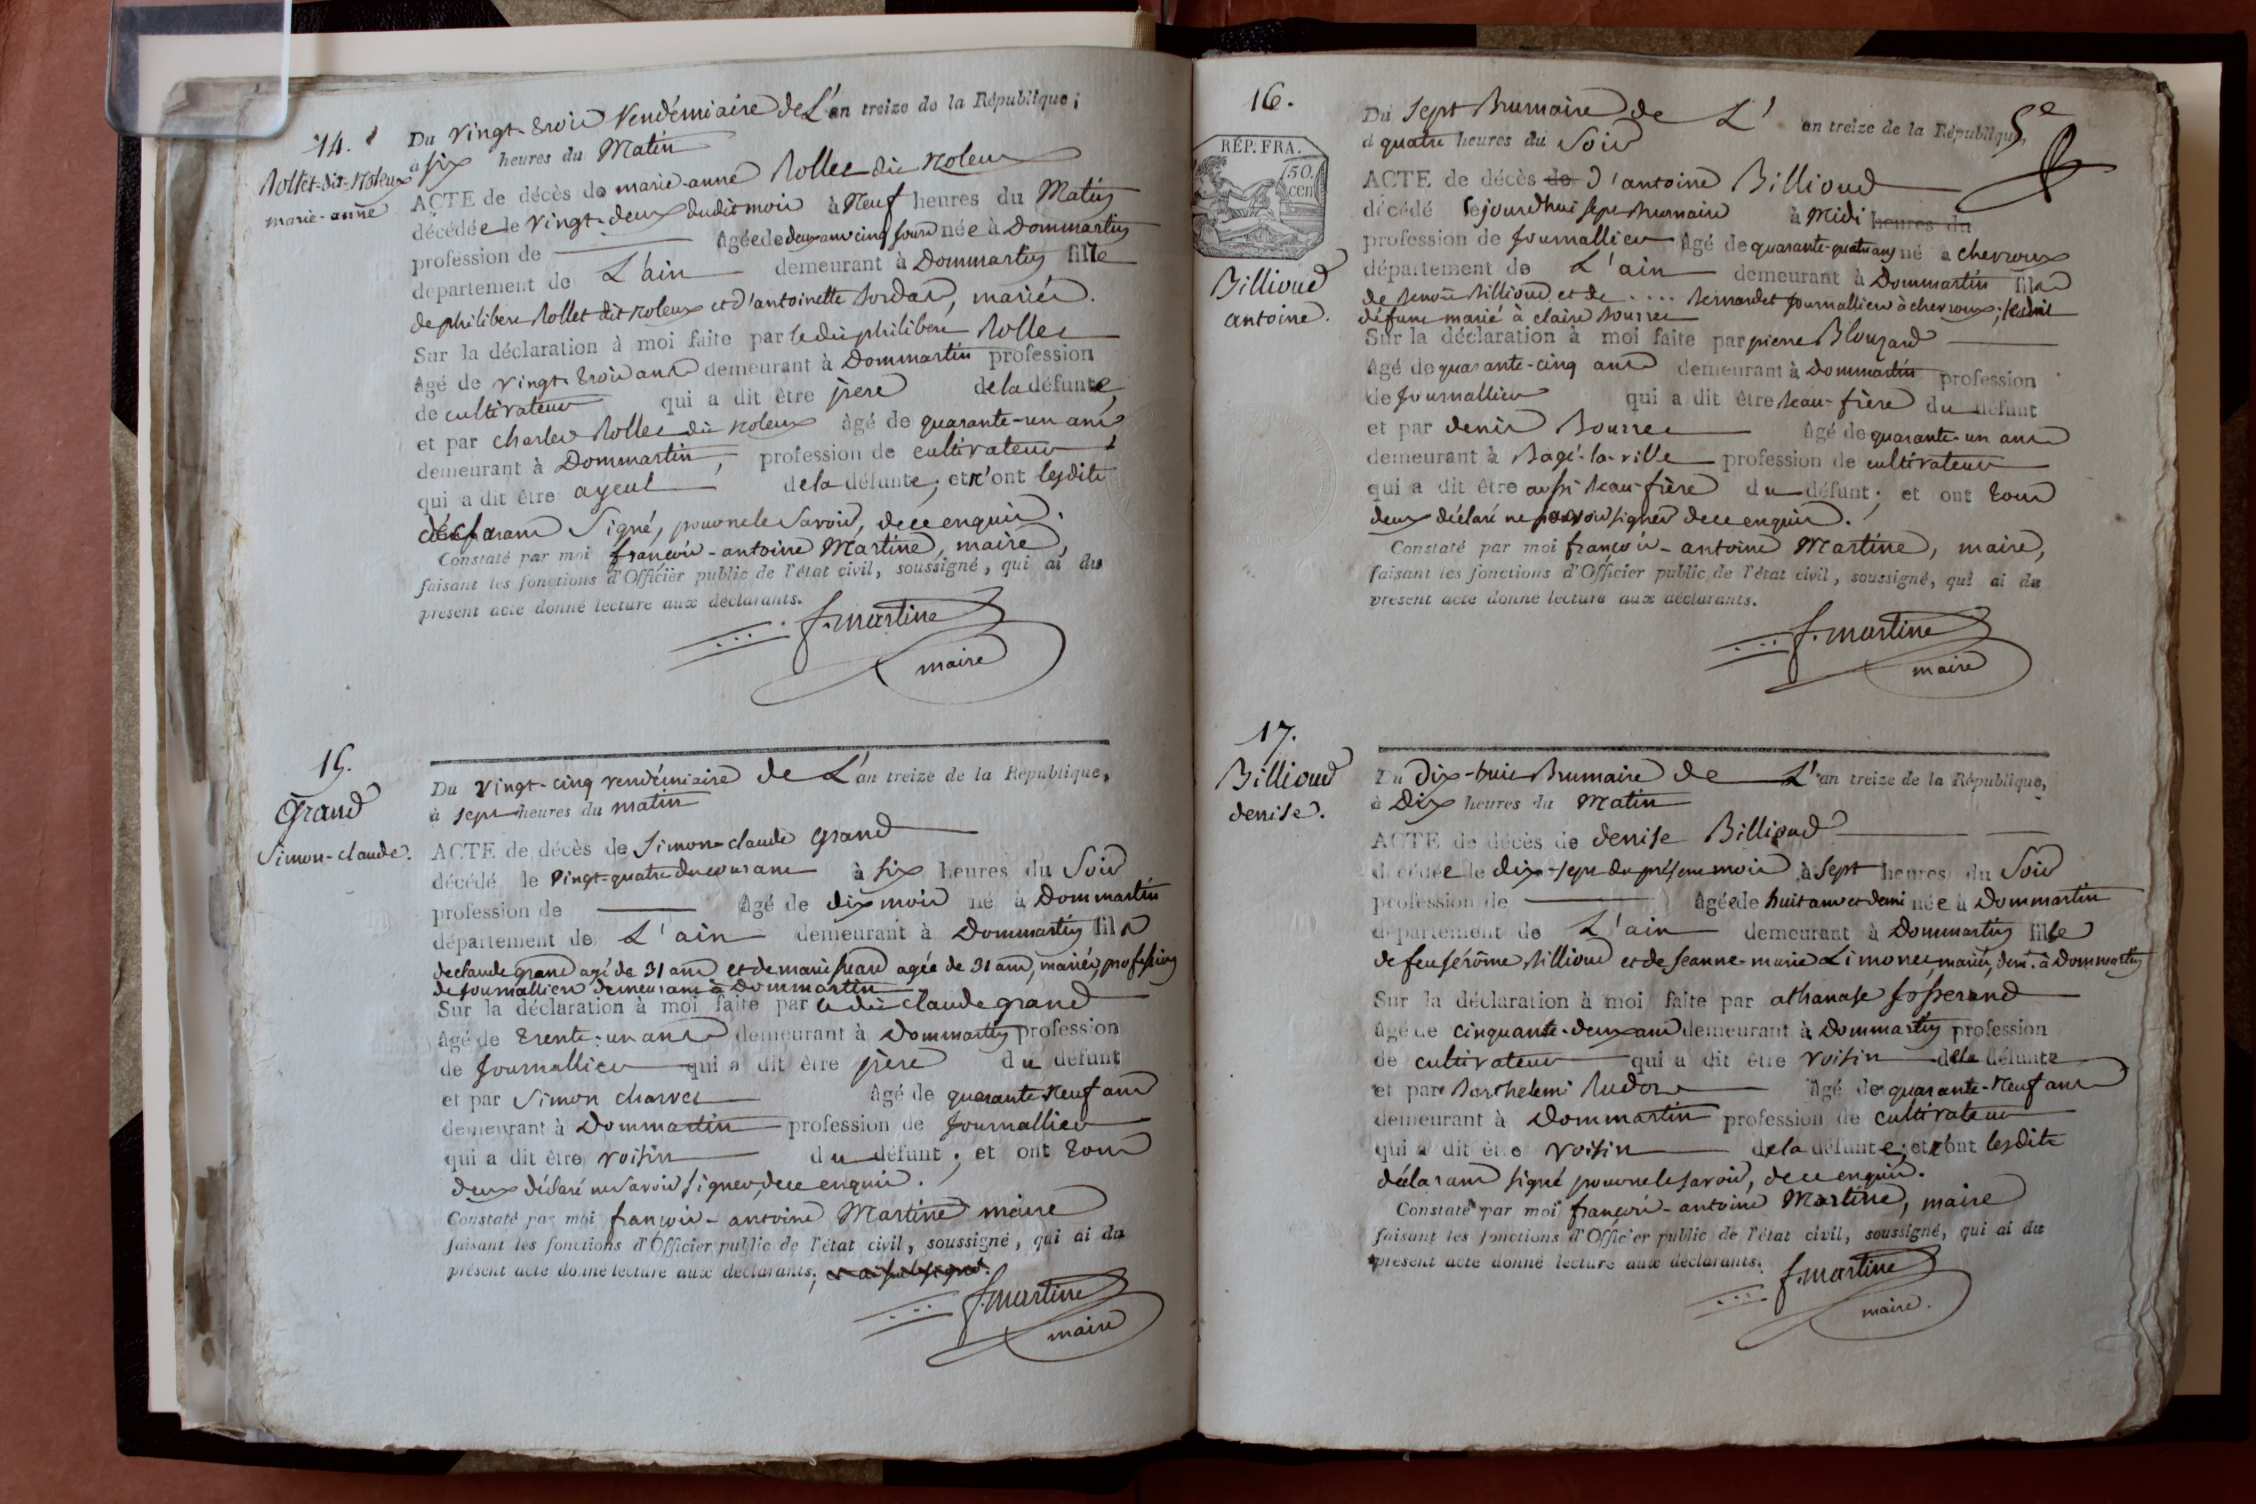 14.
Rollet-dit-Noleux
marie-anne
Du vingt-trois Vendémiaire de L'an treize de la République;
à six heures du Matin
ACTE de décès de marie-anne Rollet dit Noleux
décédée le vingt-deux dudit mois à Neuf heures du Matin
profession de âgée de deux ans cinq jours née à Dommartin
département de L'ain demeurant à Dommartin fille
de philibert Rollet dit Noleux et d'antoinette, mariés.
Sur la déclaration à moi faite par ledit philibert Rollet
âgé de vingt-trois ans demeurant à Dommartin profession
de cultivateur qui a dit être père de la défunte,
et par charles Rollet dit Noleux âgé de quarante-un ans
demeurant à Dommartin, profession de cultivateur
qui a dit être ayeul de la défunte; et n'ont lesdits
déclarans Signé, pour ne le Savoir, de ce enquis.
Constaté par moi françois-antoine Martine, maire,
faisant les fonctions d'Officier public de l'état civil, soussigné, qui ai du
présent acte donné lecture aux déclarants.
f. martine
maire
15.
Grand
Simon-claude.
Du vingt-cinq vendémiaire de L'an treize de la République,
à sept heures du matin
ACTE de décès de Simon-claude Grand
décédé le vingt-quatre du courant à six heures du Soir
profession de âgé de dix mois né à Dommartin
département de L'ain demeurant à Dommartin fils
de claude grand agé de 31 ans et de marie agée de 31 ans, mariés, profession
de journallier demeurans à Dommartin
Sur la déclaration à moi faite par ledit claude grand
âgé de trente-un ans demeurant à Dommartin profession
de Journallier qui a dit être père du défunt
et par Simon charvet âgé de quarante-Neuf ans
demeurant à Dommartin profession de Journallier
qui a dit être voisin du défunt; et ont tous
deux déclaré ne savoir signer, de ce enquis.
Constaté par moi françois-antoine Martine maire
faisant les fonctions d'Officier public de l'état civil, soussigné, qui ai du
présent acte donné lecture aux déclarants;
f. martine
maire
16.
RÉP. FRA.
50.
cen
Billioud
antoine.
5e
Du sept Brumaire de L'an treize de la République,
à quatre heures du Soir
ACTE de décès de d'antoine Billioud
décédé cejourdhui sept brumaire à Midi heures du
profession de Journallier âgé de quarante-quatre ans né à chevroux
département de L'ain demeurant à Dommartin fils
de benoit Billioud et de .... bernardet journallier à chevroux; ledit
défunt marié à claire bourret
Sur la déclaration à moi faite par pierre Blouzard
âgé de quarante-cinq ans demeurant à Dommartin profession
de Journallier qui a dit être beau-frère du défunt
et par denis Bourret âgé de quarante-un ans
demeurant à Bagé-la-ville profession de cultivateur
qui a dit être aussi beau-frère du défunt; et ont tous
deux déclaré ne savoir signer de ce enquis.
Constaté par moi françois-antoine Martine, maire,
faisant les fonctions d'Officier public de l'état civil, soussigné, qui ai du
présent acte donné lecture aux déclarants.
f. martine
maire
17.
Billioud
denise.
Du Dix-huit Brumaire de L'an treize de la République,
à Dix heures du Matin
ACTE de décès de denise Billioud
décédée le dix-sept du présent mois à sept heures du Soir
profession de âgée de huit ans et demi née à Dommartin
département de L'ain demeurant à Dommartin fille
de feu jérôme Billioud et de jeanne-marie Limonet, mariés, demt. à Dommartin
Sur la déclaration à moi faite par athanase josserand
âgé de cinquante-deux ans demeurant à Dommartin profession
de cultivateur qui a dit être voisin de la défunte
et par Barthelemi âgé de quarante-Neuf ans
demeurant à Dommartin profession de cultivateur
qui a dit être voisin de la défunte; et n'ont lesdits
déclarans signé pour ne le savoir, de ce enquis.
Constaté par moi françois-antoine Martine, maire
faisant les fonctions d'Officier public de l'état civil, soussigné, qui ai du
présent acte donné lecture aux déclarants.
f. martine
maire.